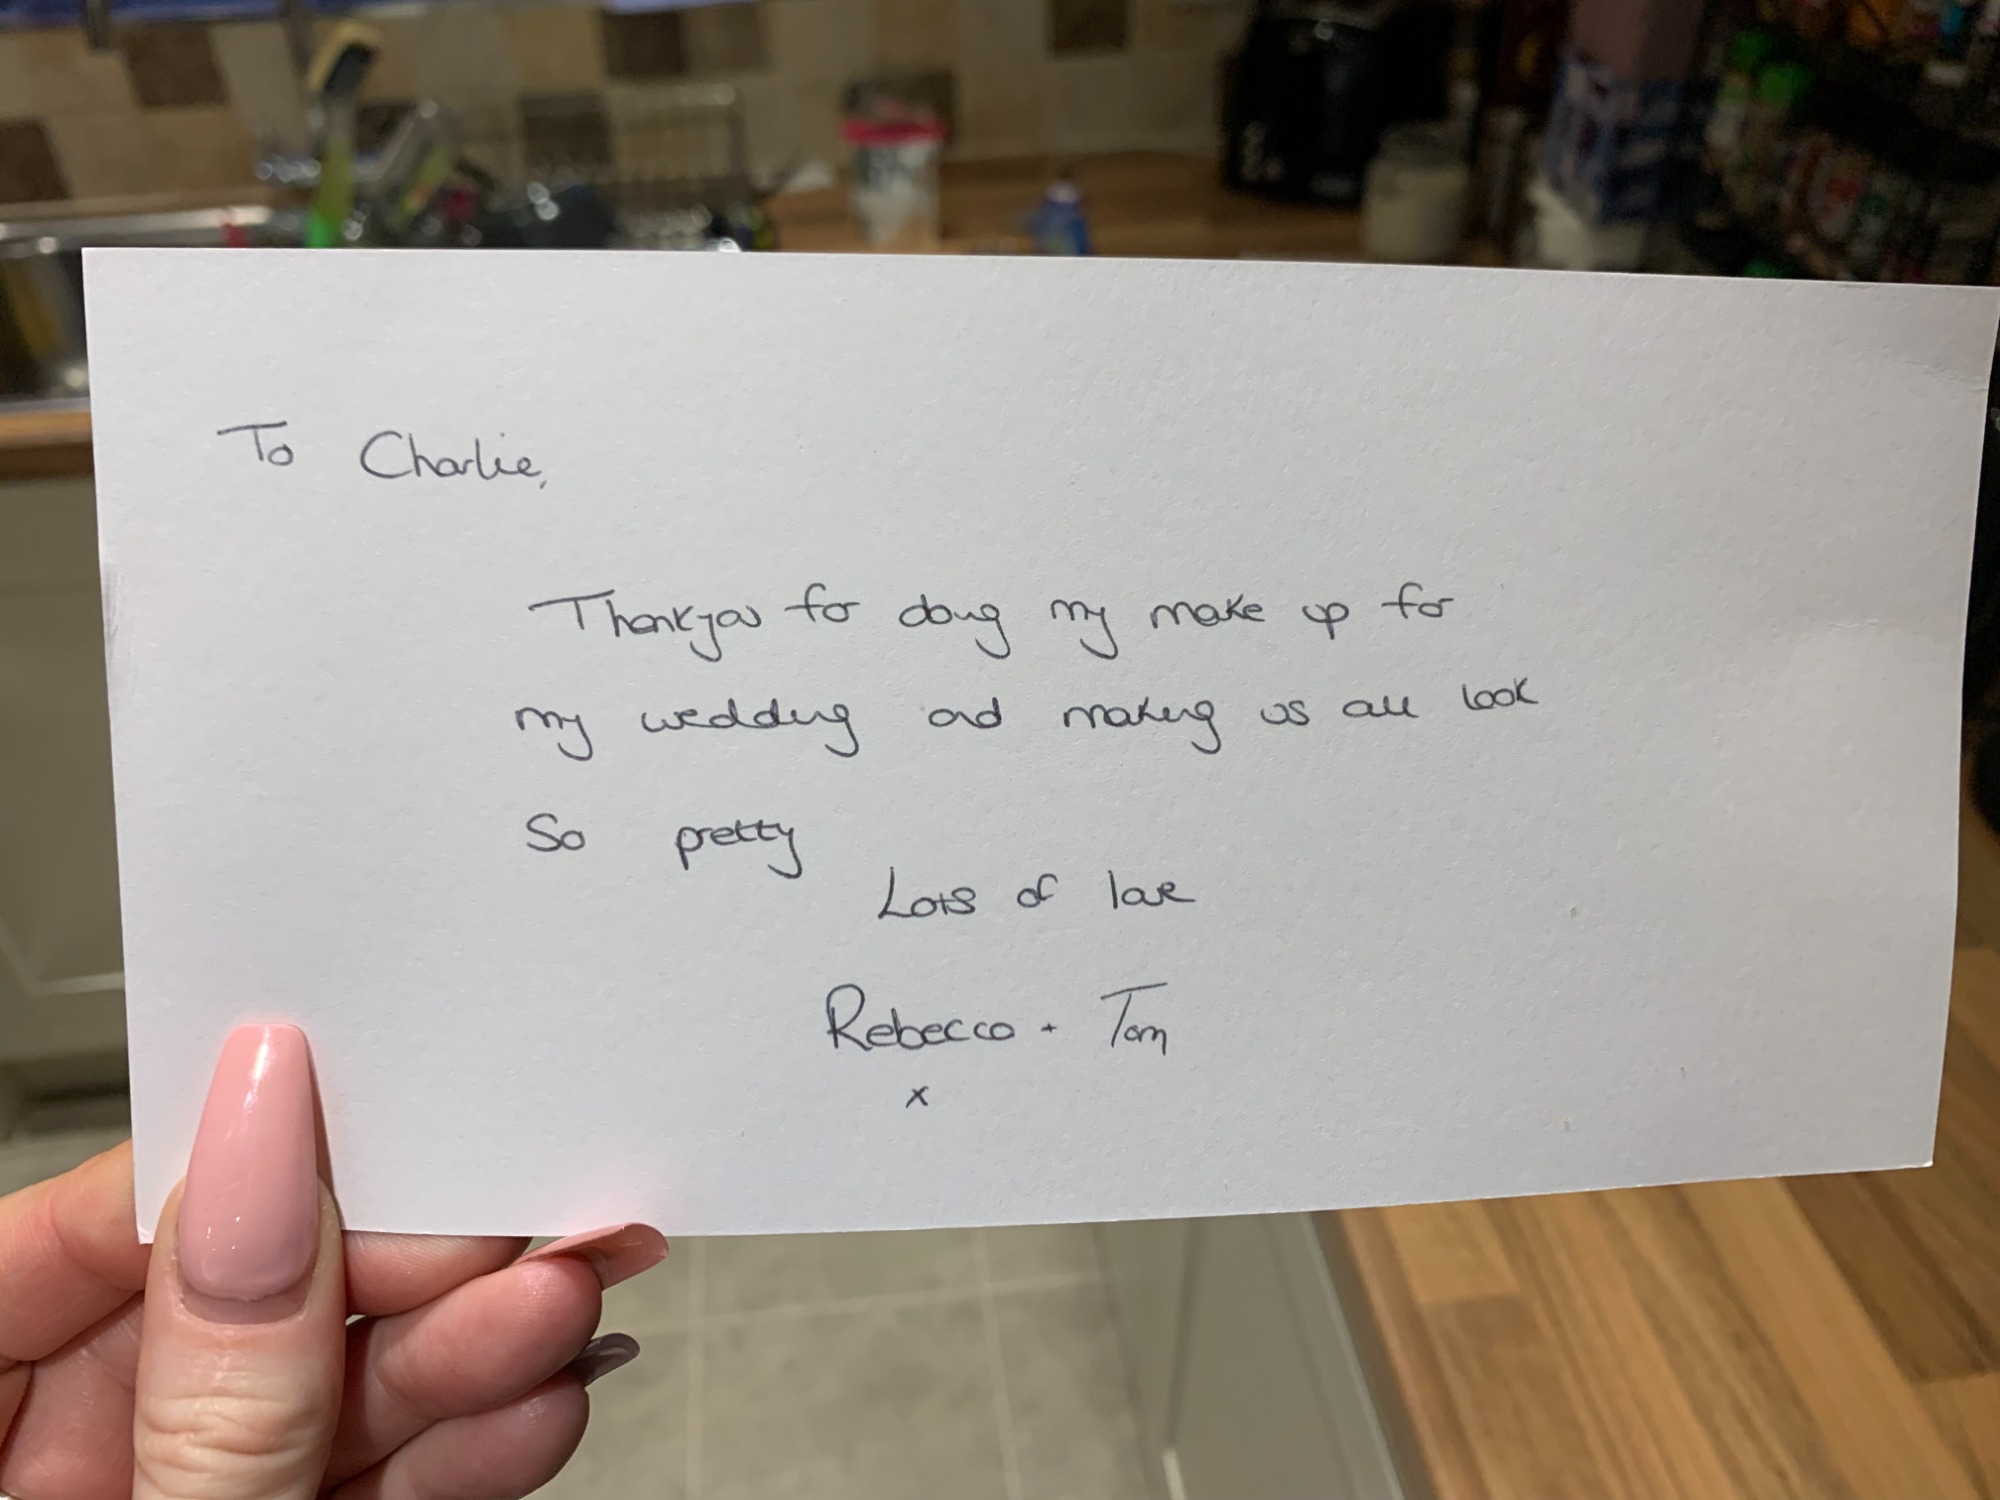 To Charlie,
Thankyou for doing my make up for
my wedding and making us all look
So pretty
Lots of love
Rebecca + Tom
x